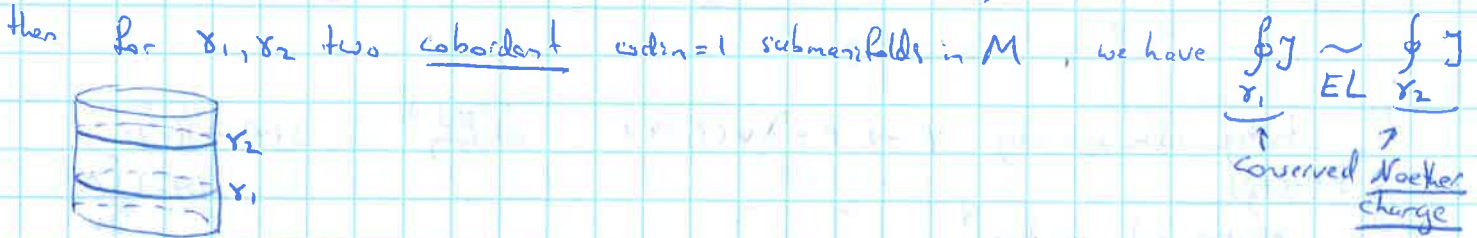 then for γ₁, γ₂ two cobordant codim=1 submanifolds in M, we have ∮_γ₁ J ~_EL ∮_γ₂ J
γ₂
γ₁
↑ ↑
Conserved Noether
charge